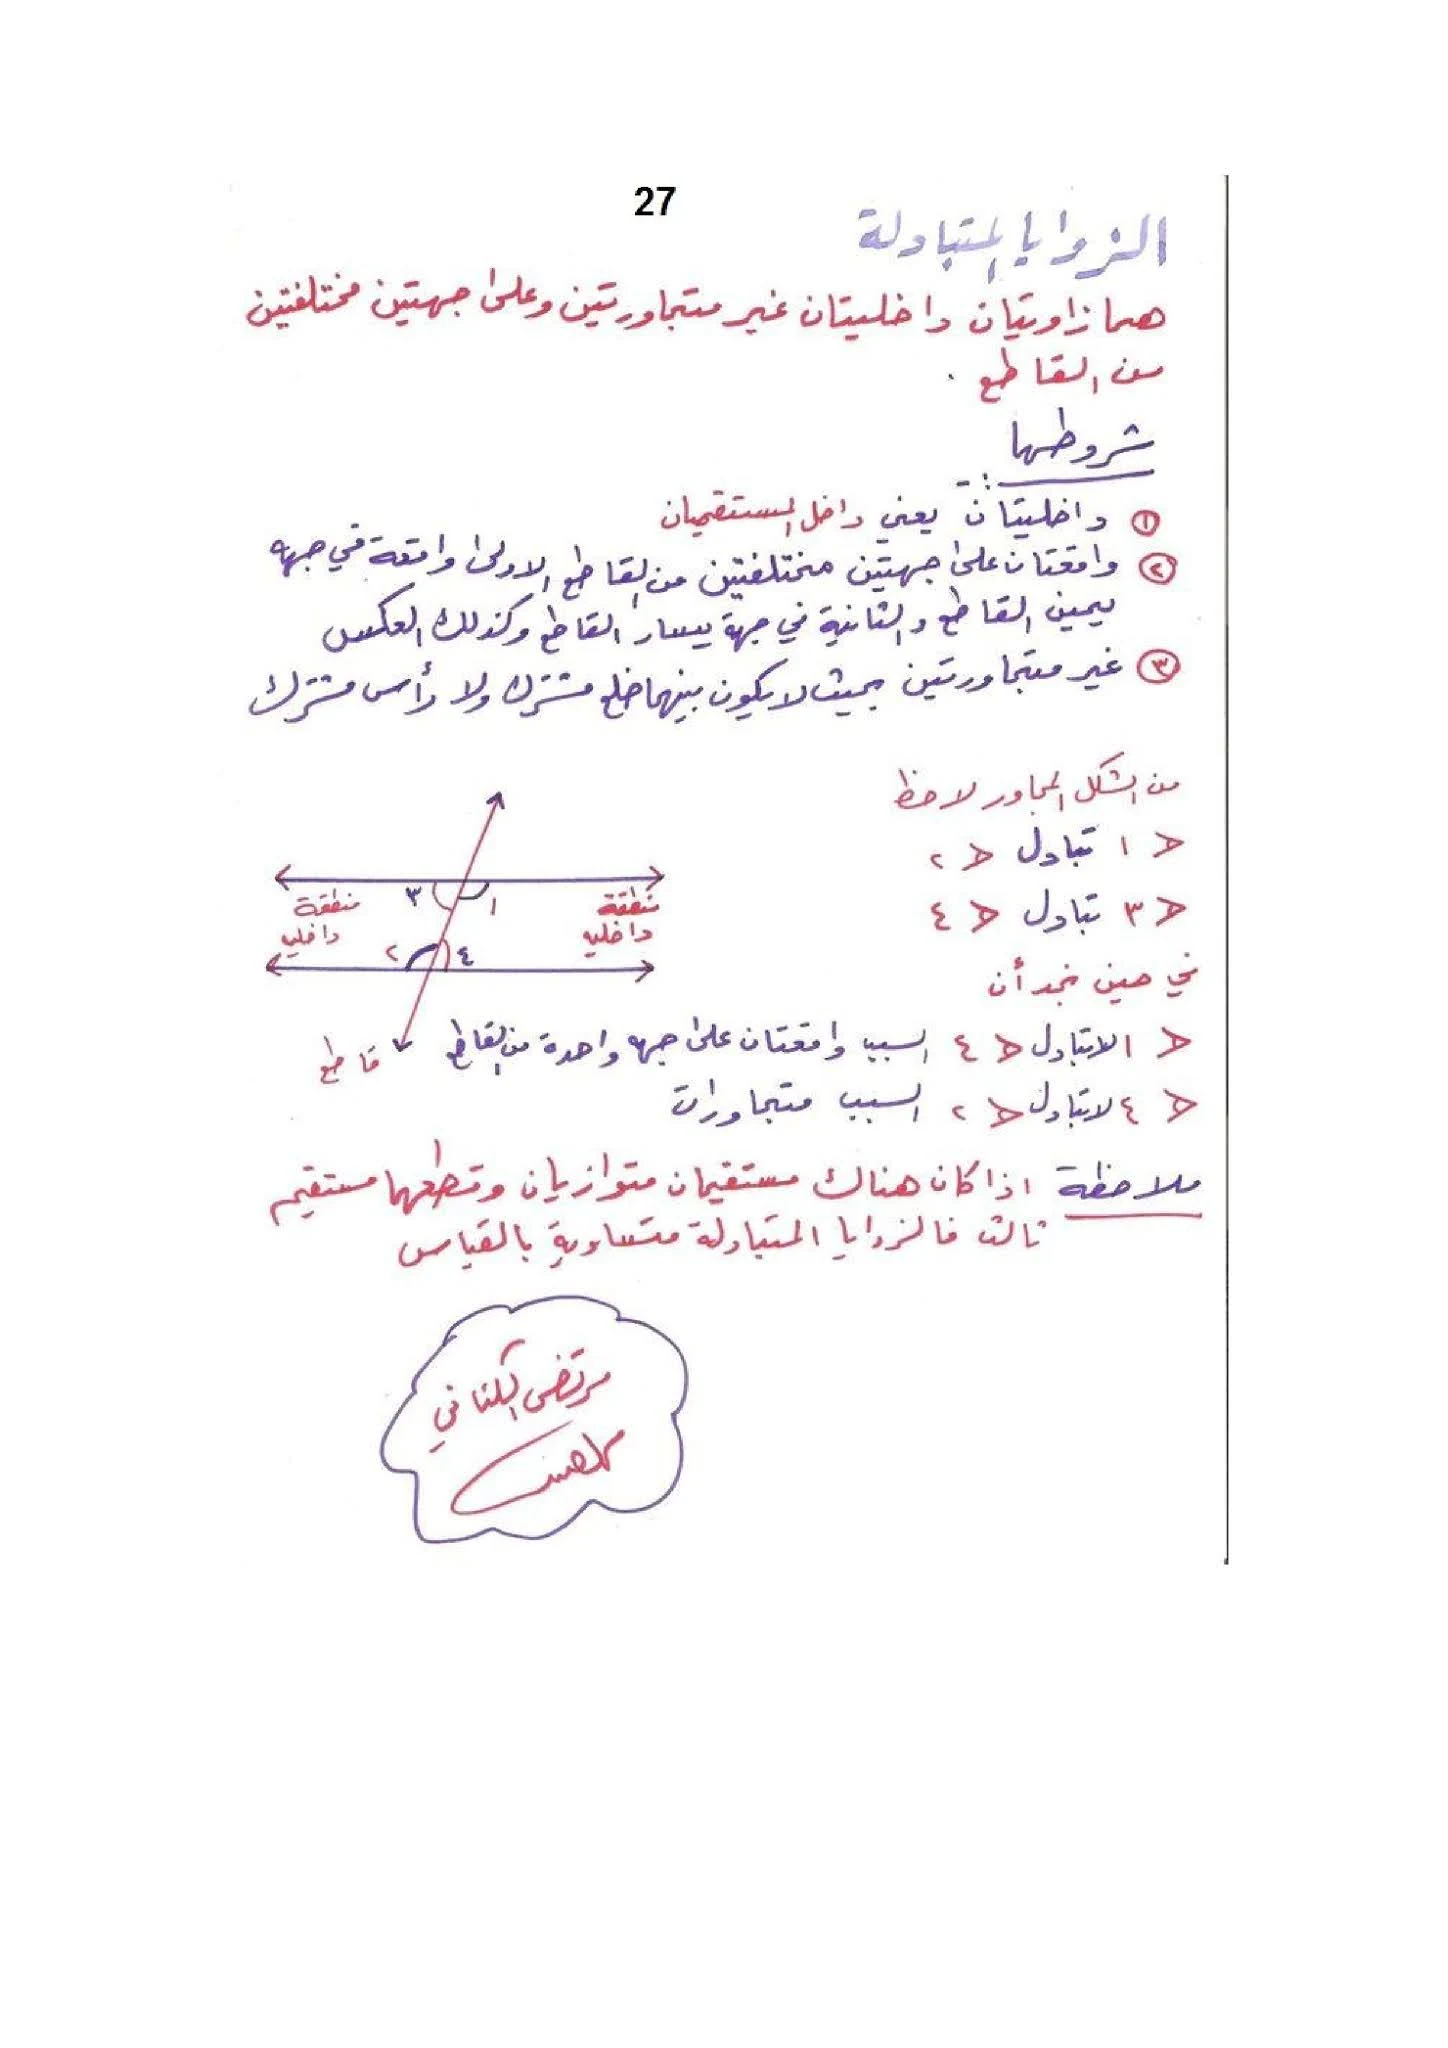 27
الزوايا المتبادلة
هما زاويتان داخليتان غير متجاورتين وعلى جهتين مختلفتين
من القاطع .
شروطها :-
١ داخليتان يعني داخل المستقيمان
٢ واقعتان على جهتين مختلفتين من القاطع الاولى واقعة في جهه
يمين القاطع والثانية في جهة يسار القاطع وكذلك العكس
٣ غير متجاورتين بحيث لا يكون بينهما ضلع مشترك ولا رأس مشترك
من الشكل المجاور لاحظ
> ١ تبادل > ٢
> ٣ تبادل > ٤
٣ ١
منطقة داخليه
منطقة داخليه
٢ ٤
قاطع
في حين نجد أن
> ١ لاتبادل > ٤ السبب واقعتان على جهه واحدة من القاطع
> ٤ لاتبادل > ٢ السبب متجاورات
ملاحظة اذا كان هناك مستقيمان متوازيان وقطعهما مستقيم
ثالث فالزوايا المتبادلة متساوية بالقياس
مرتضى الكناني